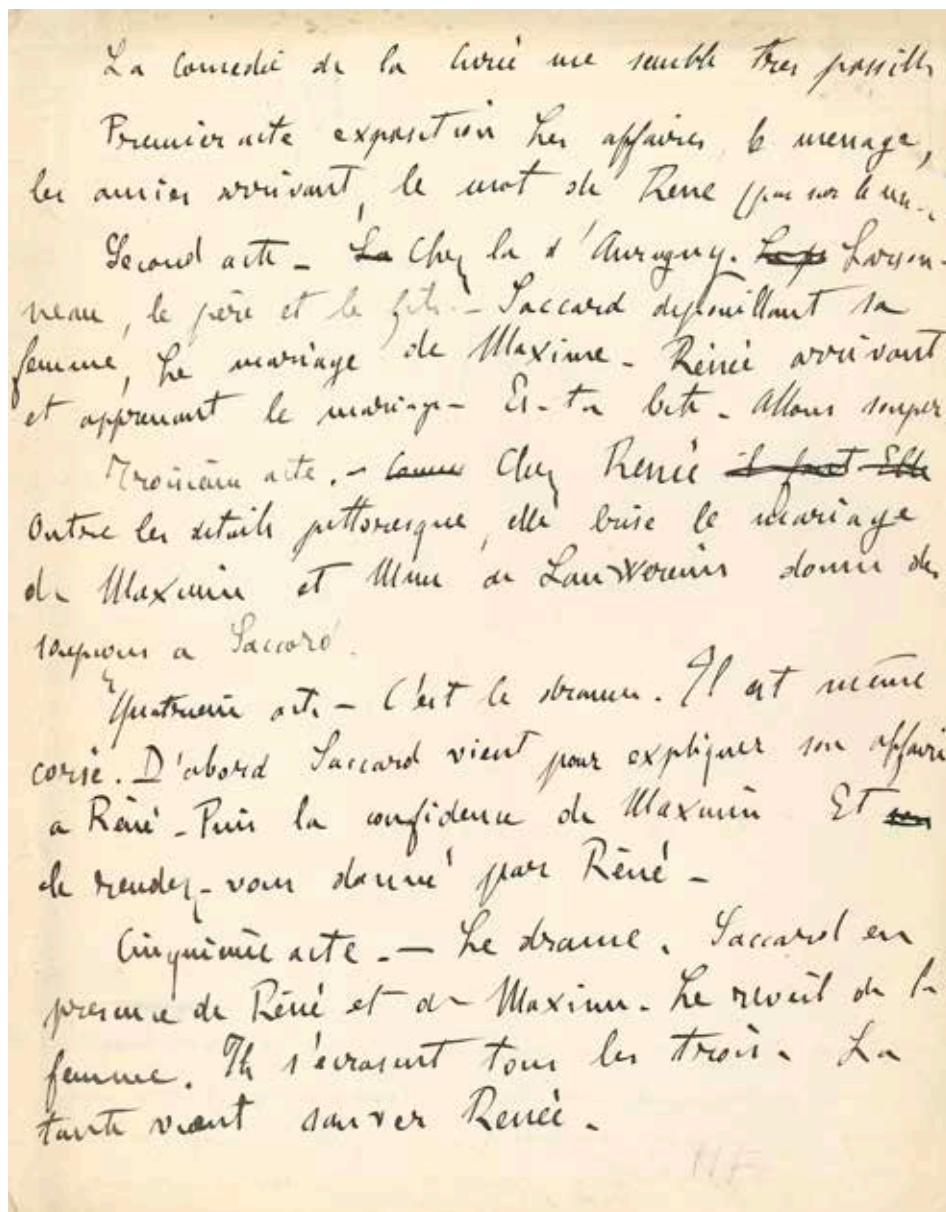 La comedie de la Curée me semble tres possible
Premier acte exposition Les affaires, le menage,
les amies arrivant, le mot de Renée
Second acte – La Chez la d'Aurigny. Larson-
neau, le père et le fils – Saccard depouillant sa
femme, Le mariage de Maxime – Renée arrivant
et apprenant le mariage – Es-tu bete – Allons souper
Troisième acte. – Chez Renée il faut Elle
Outre les details pittoresque, elle brise le mariage
de Maxime et Mme de Lauwerens donne des
soupçons a Saccard.
Quatrieme acte – C'est le drame. Il est même
corsé. D'abord Saccard vient pour expliquer son affaire
a Réné – Puis la confidence de Maxime Et
le rendez-vous donné par Réné –
Cinquième acte. – Le drame. Saccard en
presence de Réné et de Maxime – Le reveil de la
femme. Ils s'écrasent tous les trois – La
tante vient sauver Renée –